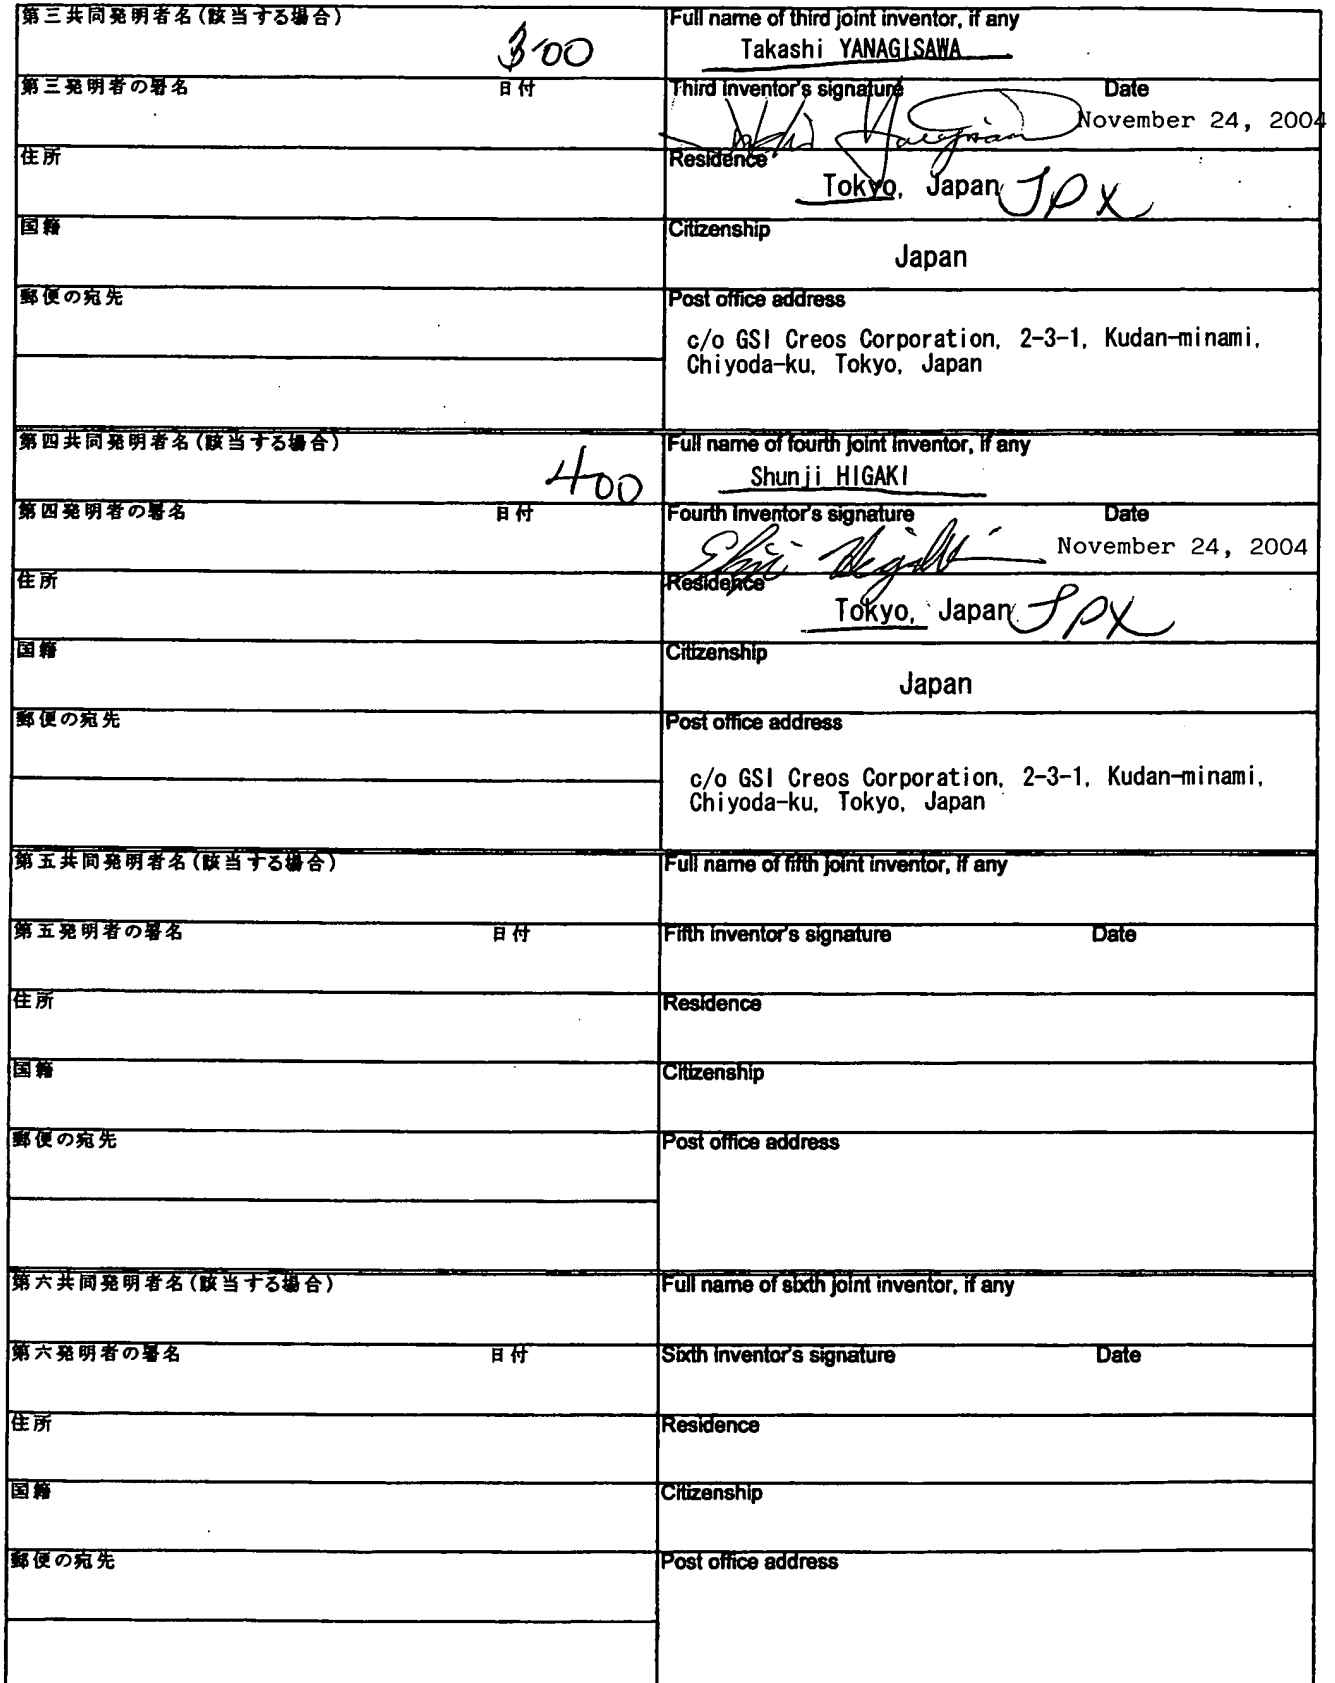 第三共同発明者名(該当する場合)
3-00
Full name of third joint inventor, if any
Takashi YANAGISAWA
第三発明者の署名 日付
Third inventor's signature Date
November 24, 2004
住所
Residence
Tokyo, Japan JPX
国籍
Citizenship
Japan
郵便の宛先
Post office address
c/o GSI Creos Corporation, 2-3-1, Kudan-minami,
Chiyoda-ku, Tokyo, Japan
第四共同発明者名(該当する場合)
400
Full name of fourth joint inventor, if any
Shunji HIGAKI
第四発明者の署名 日付
Fourth inventor's signature Date
November 24, 2004
住所
Residence
Tokyo, Japan JPX
国籍
Citizenship
Japan
郵便の宛先
Post office address
c/o GSI Creos Corporation, 2-3-1, Kudan-minami,
Chiyoda-ku, Tokyo, Japan
第五共同発明者名(該当する場合)
Full name of fifth joint inventor, if any
第五発明者の署名 日付
Fifth inventor's signature Date
住所
Residence
国籍
Citizenship
郵便の宛先
Post office address
第六共同発明者名(該当する場合)
Full name of sixth joint inventor, if any
第六発明者の署名 日付
Sixth inventor's signature Date
住所
Residence
国籍
Citizenship
郵便の宛先
Post office address